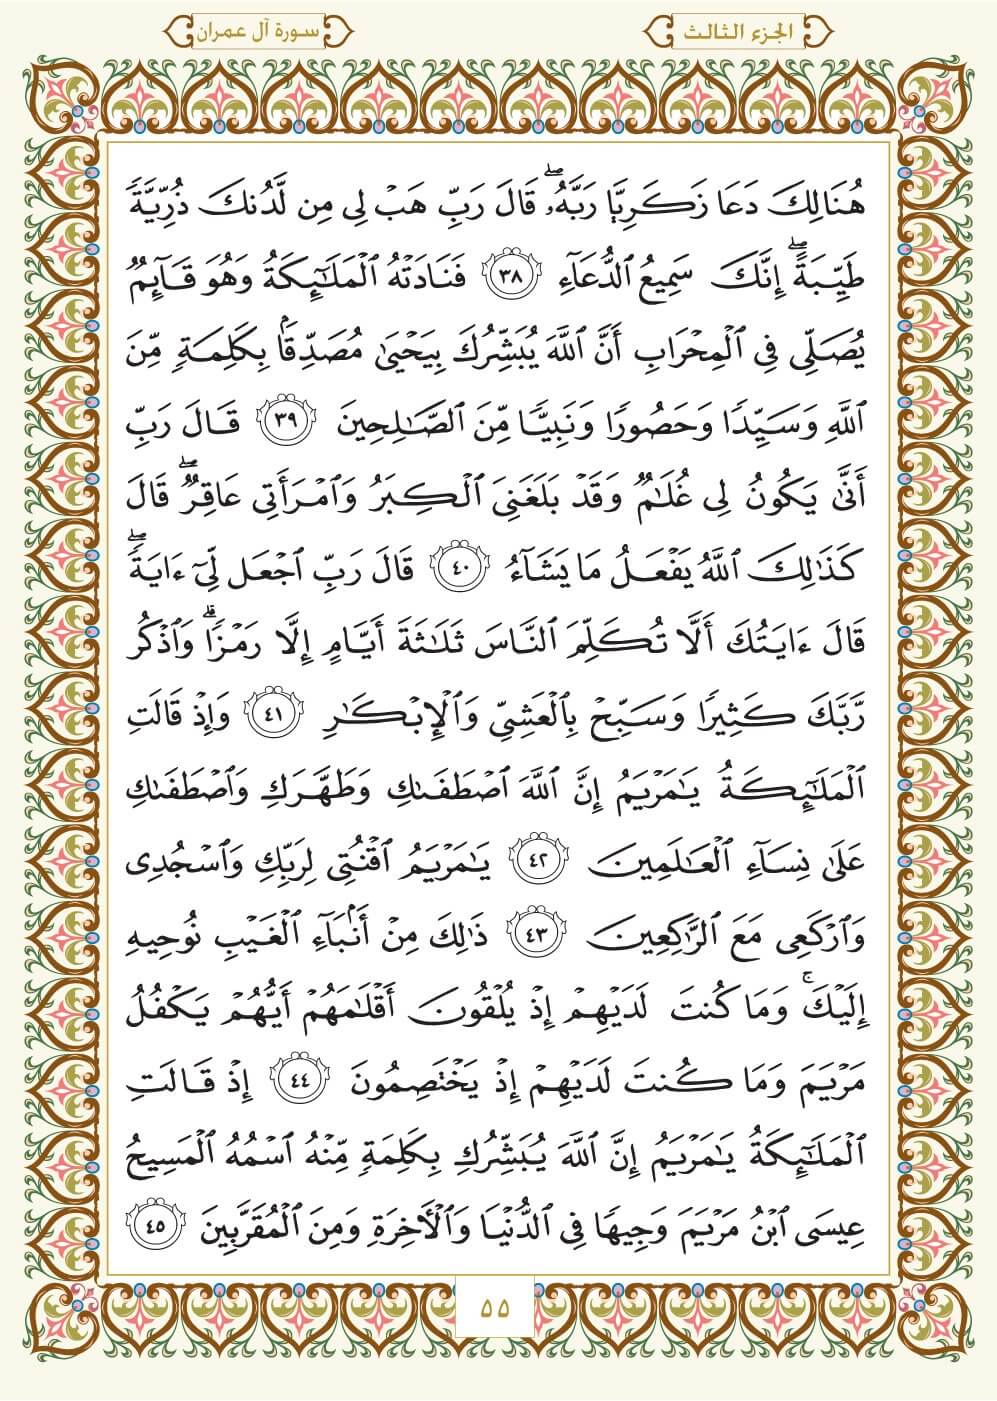 الجزء الثالث
سورة آل عمران
هُنَالِكَ دَعَا زَكَرِيَّا رَبَّهُۥۖ قَالَ رَبِّ هَبۡ لِي مِن لَّدُنكَ ذُرِّيَّةٗ
طَيِّبَةًۖ إِنَّكَ سَمِيعُ ٱلدُّعَآءِ ٣٨ فَنَادَتۡهُ ٱلۡمَلَٰٓئِكَةُ وَهُوَ قَآئِمٞ
يُصَلِّي فِي ٱلۡمِحۡرَابِ أَنَّ ٱللَّهَ يُبَشِّرُكَ بِيَحۡيَىٰ مُصَدِّقَۢا بِكَلِمَةٖ مِّنَ
ٱللَّهِ وَسَيِّدٗا وَحَصُورٗا وَنَبِيّٗا مِّنَ ٱلصَّٰلِحِينَ ٣٩ قَالَ رَبِّ
أَنَّىٰ يَكُونُ لِي غُلَٰمٞ وَقَدۡ بَلَغَنِيَ ٱلۡكِبَرُ وَٱمۡرَأَتِي عَاقِرٞۖ قَالَ
كَذَٰلِكَ ٱللَّهُ يَفۡعَلُ مَا يَشَآءُ ٤٠ قَالَ رَبِّ ٱجۡعَل لِّيٓ ءَايَةٗۖ
قَالَ ءَايَتُكَ أَلَّا تُكَلِّمَ ٱلنَّاسَ ثَلَٰثَةَ أَيَّامٍ إِلَّا رَمۡزٗاۗ وَٱذۡكُر
رَّبَّكَ كَثِيرٗا وَسَبِّحۡ بِٱلۡعَشِيِّ وَٱلۡإِبۡكَٰرِ ٤١ وَإِذۡ قَالَتِ
ٱلۡمَلَٰٓئِكَةُ يَٰمَرۡيَمُ إِنَّ ٱللَّهَ ٱصۡطَفَىٰكِ وَطَهَّرَكِ وَٱصۡطَفَىٰكِ
عَلَىٰ نِسَآءِ ٱلۡعَٰلَمِينَ ٤٢ يَٰمَرۡيَمُ ٱقۡنُتِي لِرَبِّكِ وَٱسۡجُدِي
وَٱرۡكَعِي مَعَ ٱلرَّٰكِعِينَ ٤٣ ذَٰلِكَ مِنۡ أَنۢبَآءِ ٱلۡغَيۡبِ نُوحِيهِ
إِلَيۡكَۚ وَمَا كُنتَ لَدَيۡهِمۡ إِذۡ يُلۡقُونَ أَقۡلَٰمَهُمۡ أَيُّهُمۡ يَكۡفُلُ
مَرۡيَمَ وَمَا كُنتَ لَدَيۡهِمۡ إِذۡ يَخۡتَصِمُونَ ٤٤ إِذۡ قَالَتِ
ٱلۡمَلَٰٓئِكَةُ يَٰمَرۡيَمُ إِنَّ ٱللَّهَ يُبَشِّرُكِ بِكَلِمَةٖ مِّنۡهُ ٱسۡمُهُ ٱلۡمَسِيحُ
عِيسَى ٱبۡنُ مَرۡيَمَ وَجِيهٗا فِي ٱلدُّنۡيَا وَٱلۡأٓخِرَةِ وَمِنَ ٱلۡمُقَرَّبِينَ ٤٥
٥٥